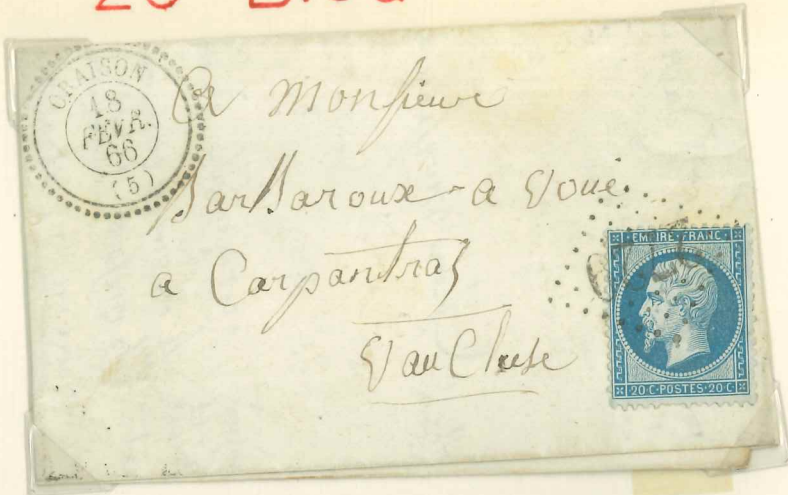 20 Bleu
ORAISON
18
FEVR.
66
(5)
A Monsieur
Barbaroux - a Voué
a Carpantras
Vau Cluse
EMPIRE FRANC
20 C·POSTES·20 C